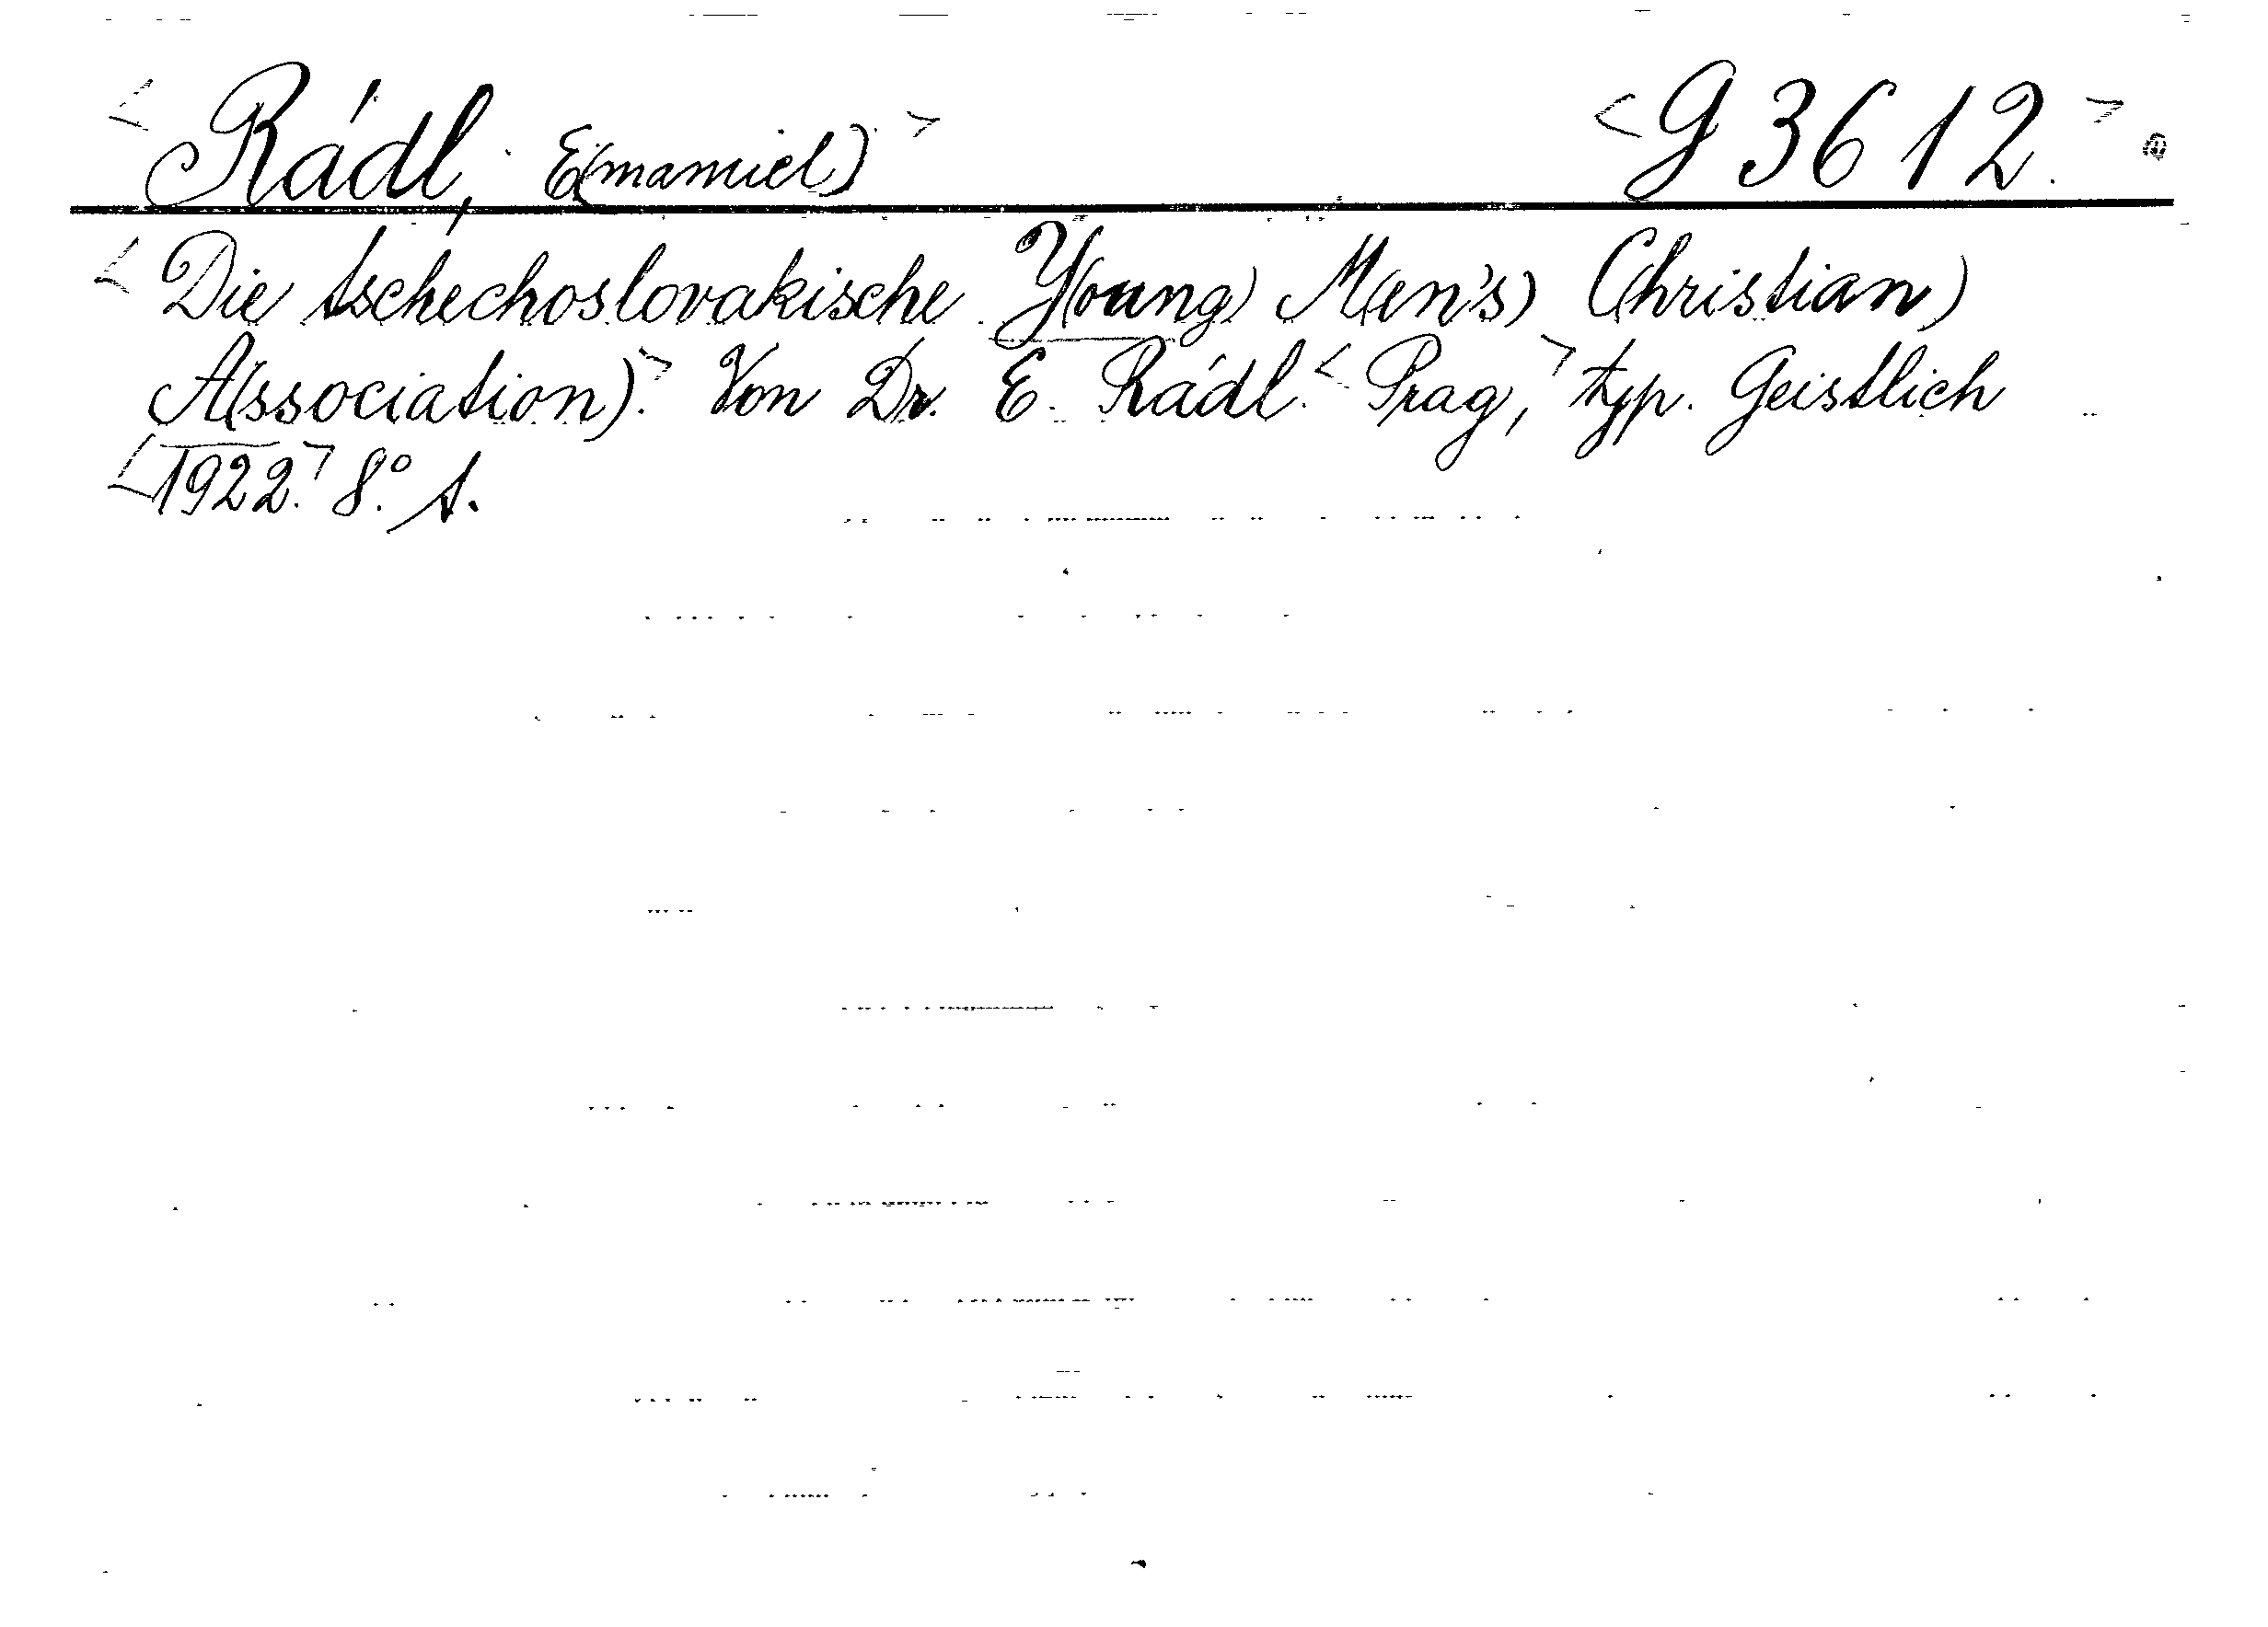 <Rádl, E(mamiel)> <G 3612.>
<Die tschechoslovakische Y(oung) M(en's) C(hristian)
A(ssociation).> Von Dr. E. Rádl. <Prag,> typ. Geistlich
<1922.> 8.°